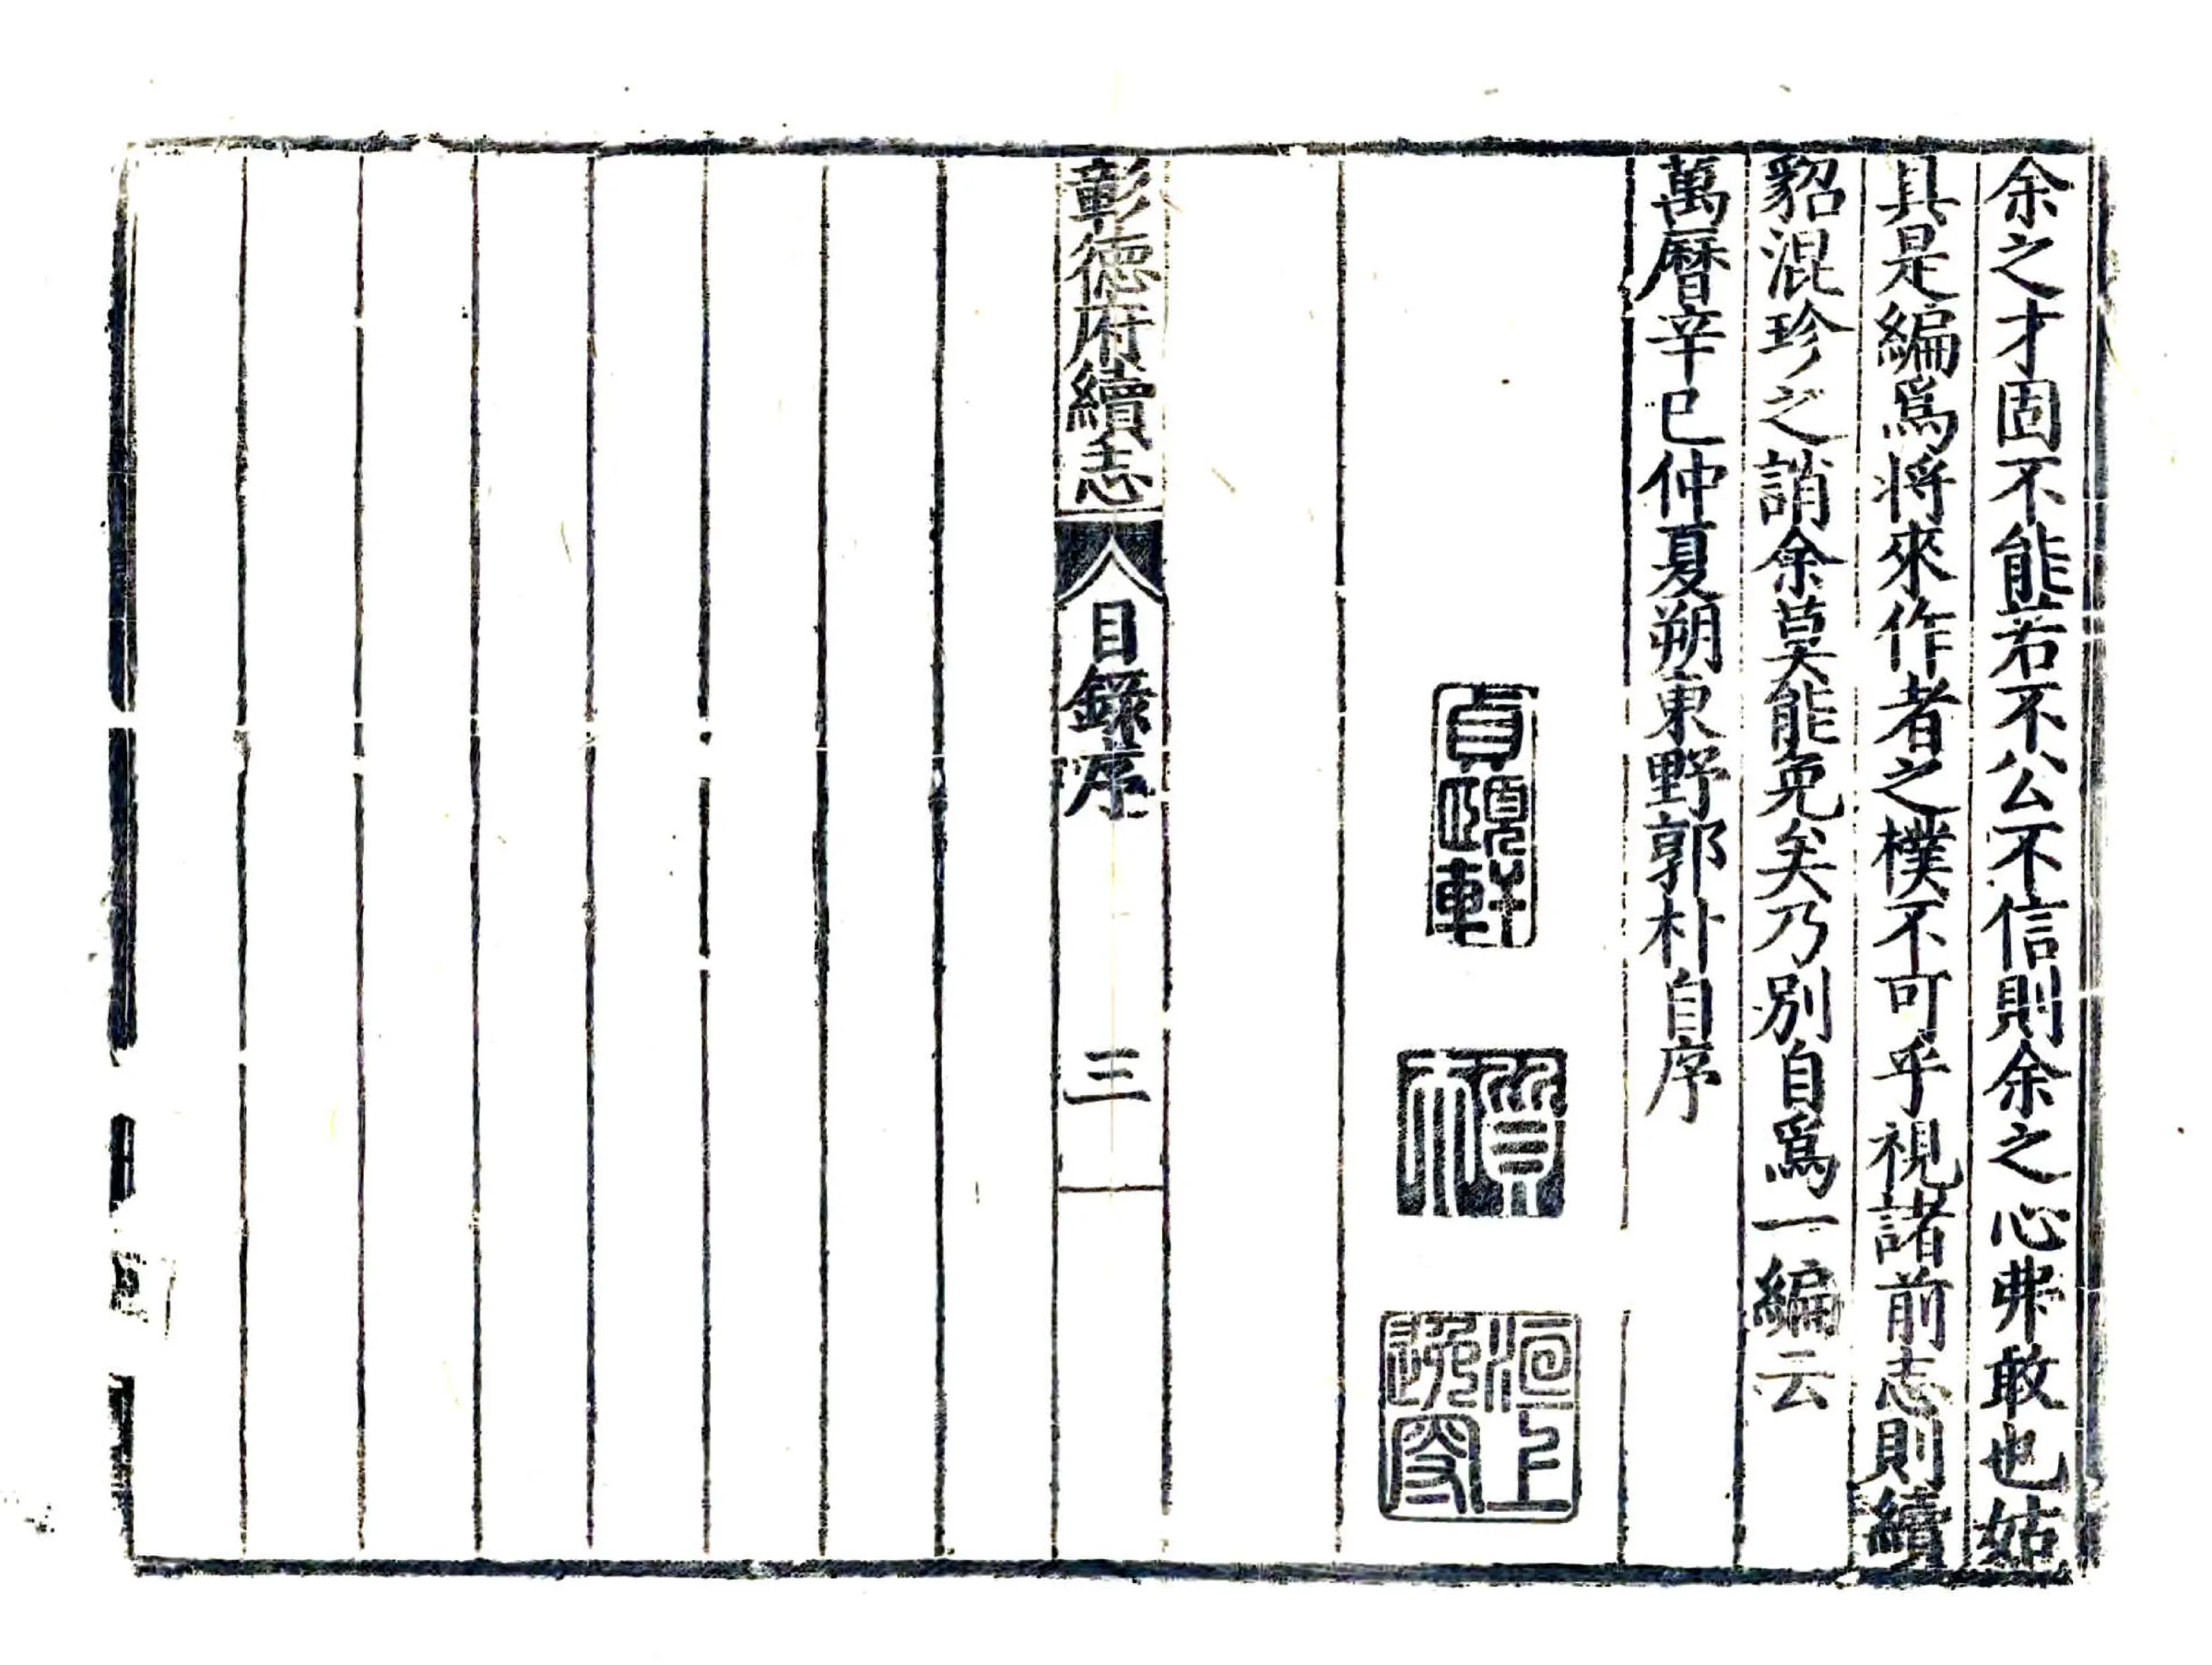 余之才固不能若不公不信則余之心弗敢也姑
具是編爲將來作者之樸不可乎視諸前志則續
貂混珍之誚余莫能免矣乃別自爲一編云
萬曆辛巳仲夏朔東野郭朴自序
貞頤軒
質夫
洹上
逸叟
彰德府續志
目錄序
三